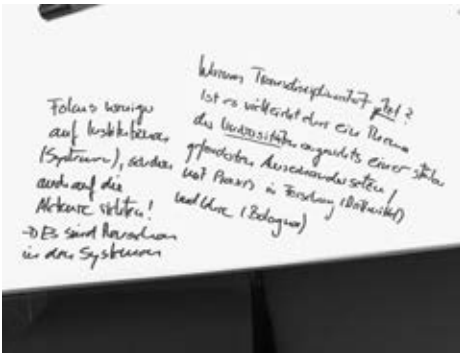 Fokus weniger
auf Institutionen
(Systeme), sondern
auch auf die
Akteure richten!
→ Es sind Menschen
in den Systemen
Warum Transdisziplinarität jetzt?
Ist es vielleicht eher ein Thema
der Universitäten angesichts einer stärker
geforderten Auseinandersetzung
mit Praxis in Forschung (Drittmittel)
und Lehre (Bologna)